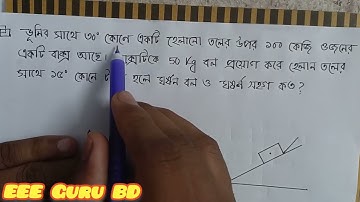 ভূমির সাথে ৩০° কোণে একটি হেলানো তলের উপর ১০০ কেজি ওজনের
একটি বাক্স আছে। 50 Kg বল প্রয়োগ করে হেলান তলের
সাথে ১৫° কোনে হলে ঘর্ষন বল ও ঘর্ষন সহগ কত?
EEE Guru BD